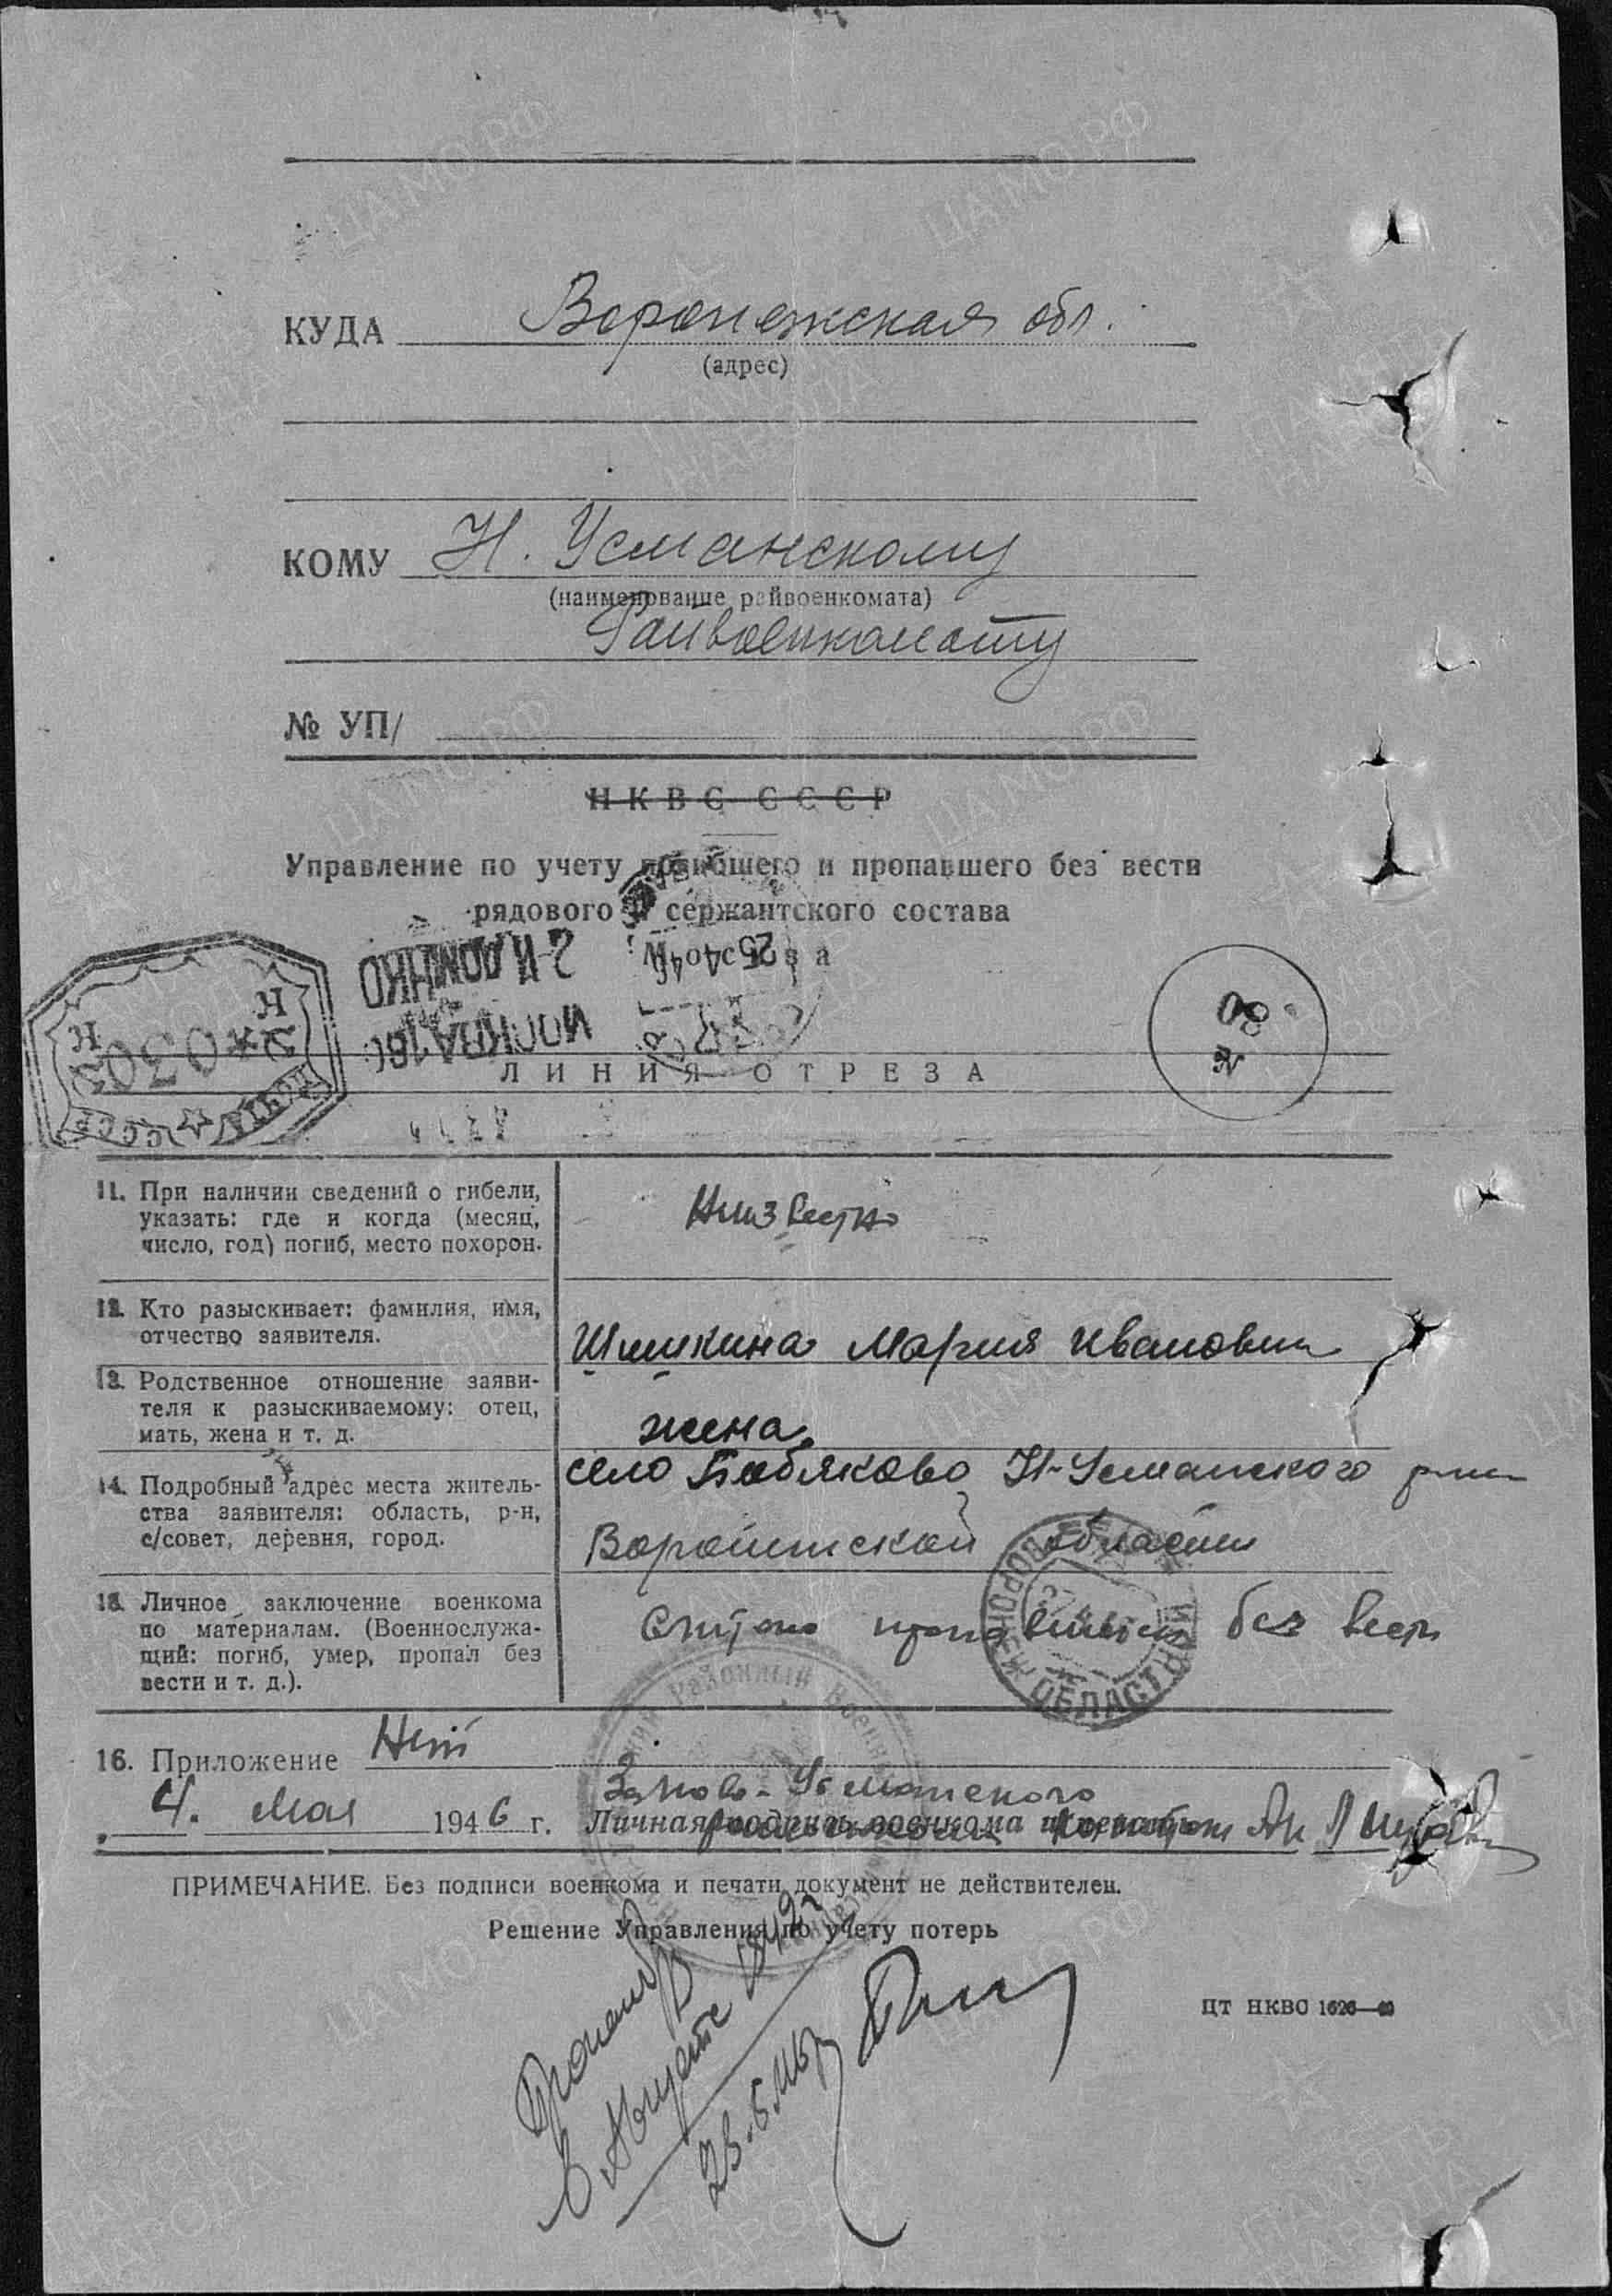 КУДА Воронежская обл.
(адрес)
КОМУ Н. Усманскому
(наименование райвоенкомата)
Райвоенкомату
№ УП/
НКВС СССР
Управление по учету погибшего и пропавшего без вести
рядового и сержантского состава
МОСКВА
ЛИНИЯ ОТРЕЗА
11. При наличии сведений о гибели,
указать: где и когда (месяц,
число, год) погиб, место похорон.
12. Кто разыскивает: фамилия, имя,
отчество заявителя.
Шишкина Мария Ивановна
13. Родственное отношение заяви-
теля к разыскиваемому: отец,
мать, жена и т. д.
жена
14. Подробный адрес места житель-
ства заявителя: область, р-н,
с/совет, деревня, город.
село Бабяково Н-Усманского
Воронежской области
15. Личное заключение военкома
по материалам. (Военнослужа-
щий: погиб, умер, пропал без
вести и т. д.).
Считаю пропавшим без вести
16. Приложение Нет
4. Мая 1946 г. Личная подпись военкома и печать
Усманского
ПРИМЕЧАНИЕ. Без подписи военкома и печати документ не действителен.
Решение Управления по учету потерь
ЦТ НКВС 1626
Пропал б/в
в августе